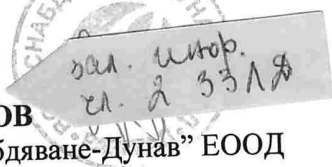 СНАБД
зал. инфор.
чл. 2 ЗЗЛД
ОВ
бдяване-Дунав” ЕООД